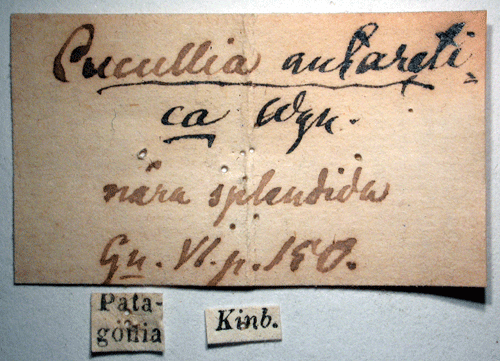 Cucullia antarcti-
ca Wgn.
nära splendida
Gn. VI. p. 150.
Pata-
gonia
Kinb.